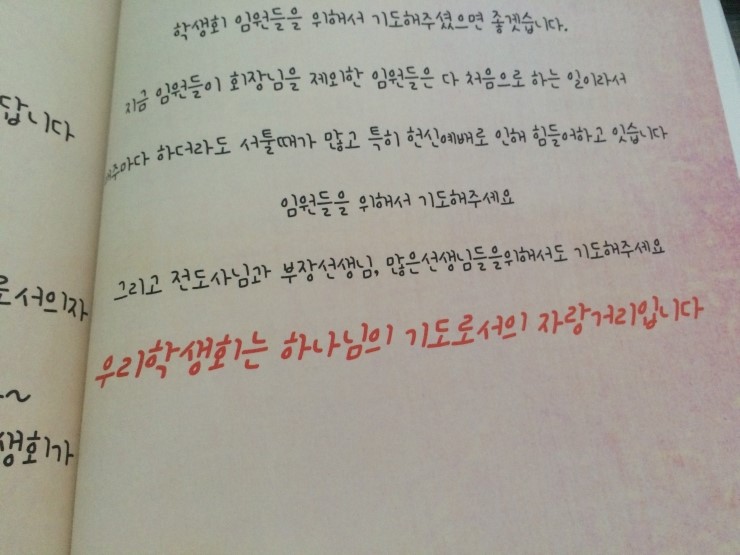 학생회 임원들을 위해서 기도해주셨으면 좋겟습니다.
지금 임원들이 회장님을 제외한 임원들은 다 처음으로 하는 일이라서
하더라도 서툴때가 많고 특히 헌신예배로 인해 힘들어하고 잇습니다
임원들을 위해서 기도해주세요
그리고 전도사님과 부장선생님, 많은선생님들을위해서도 기도해주세요
우리학생회는 하나님의 기도로서의 자랑거리입니다
답니다
로서의자
~
생회가